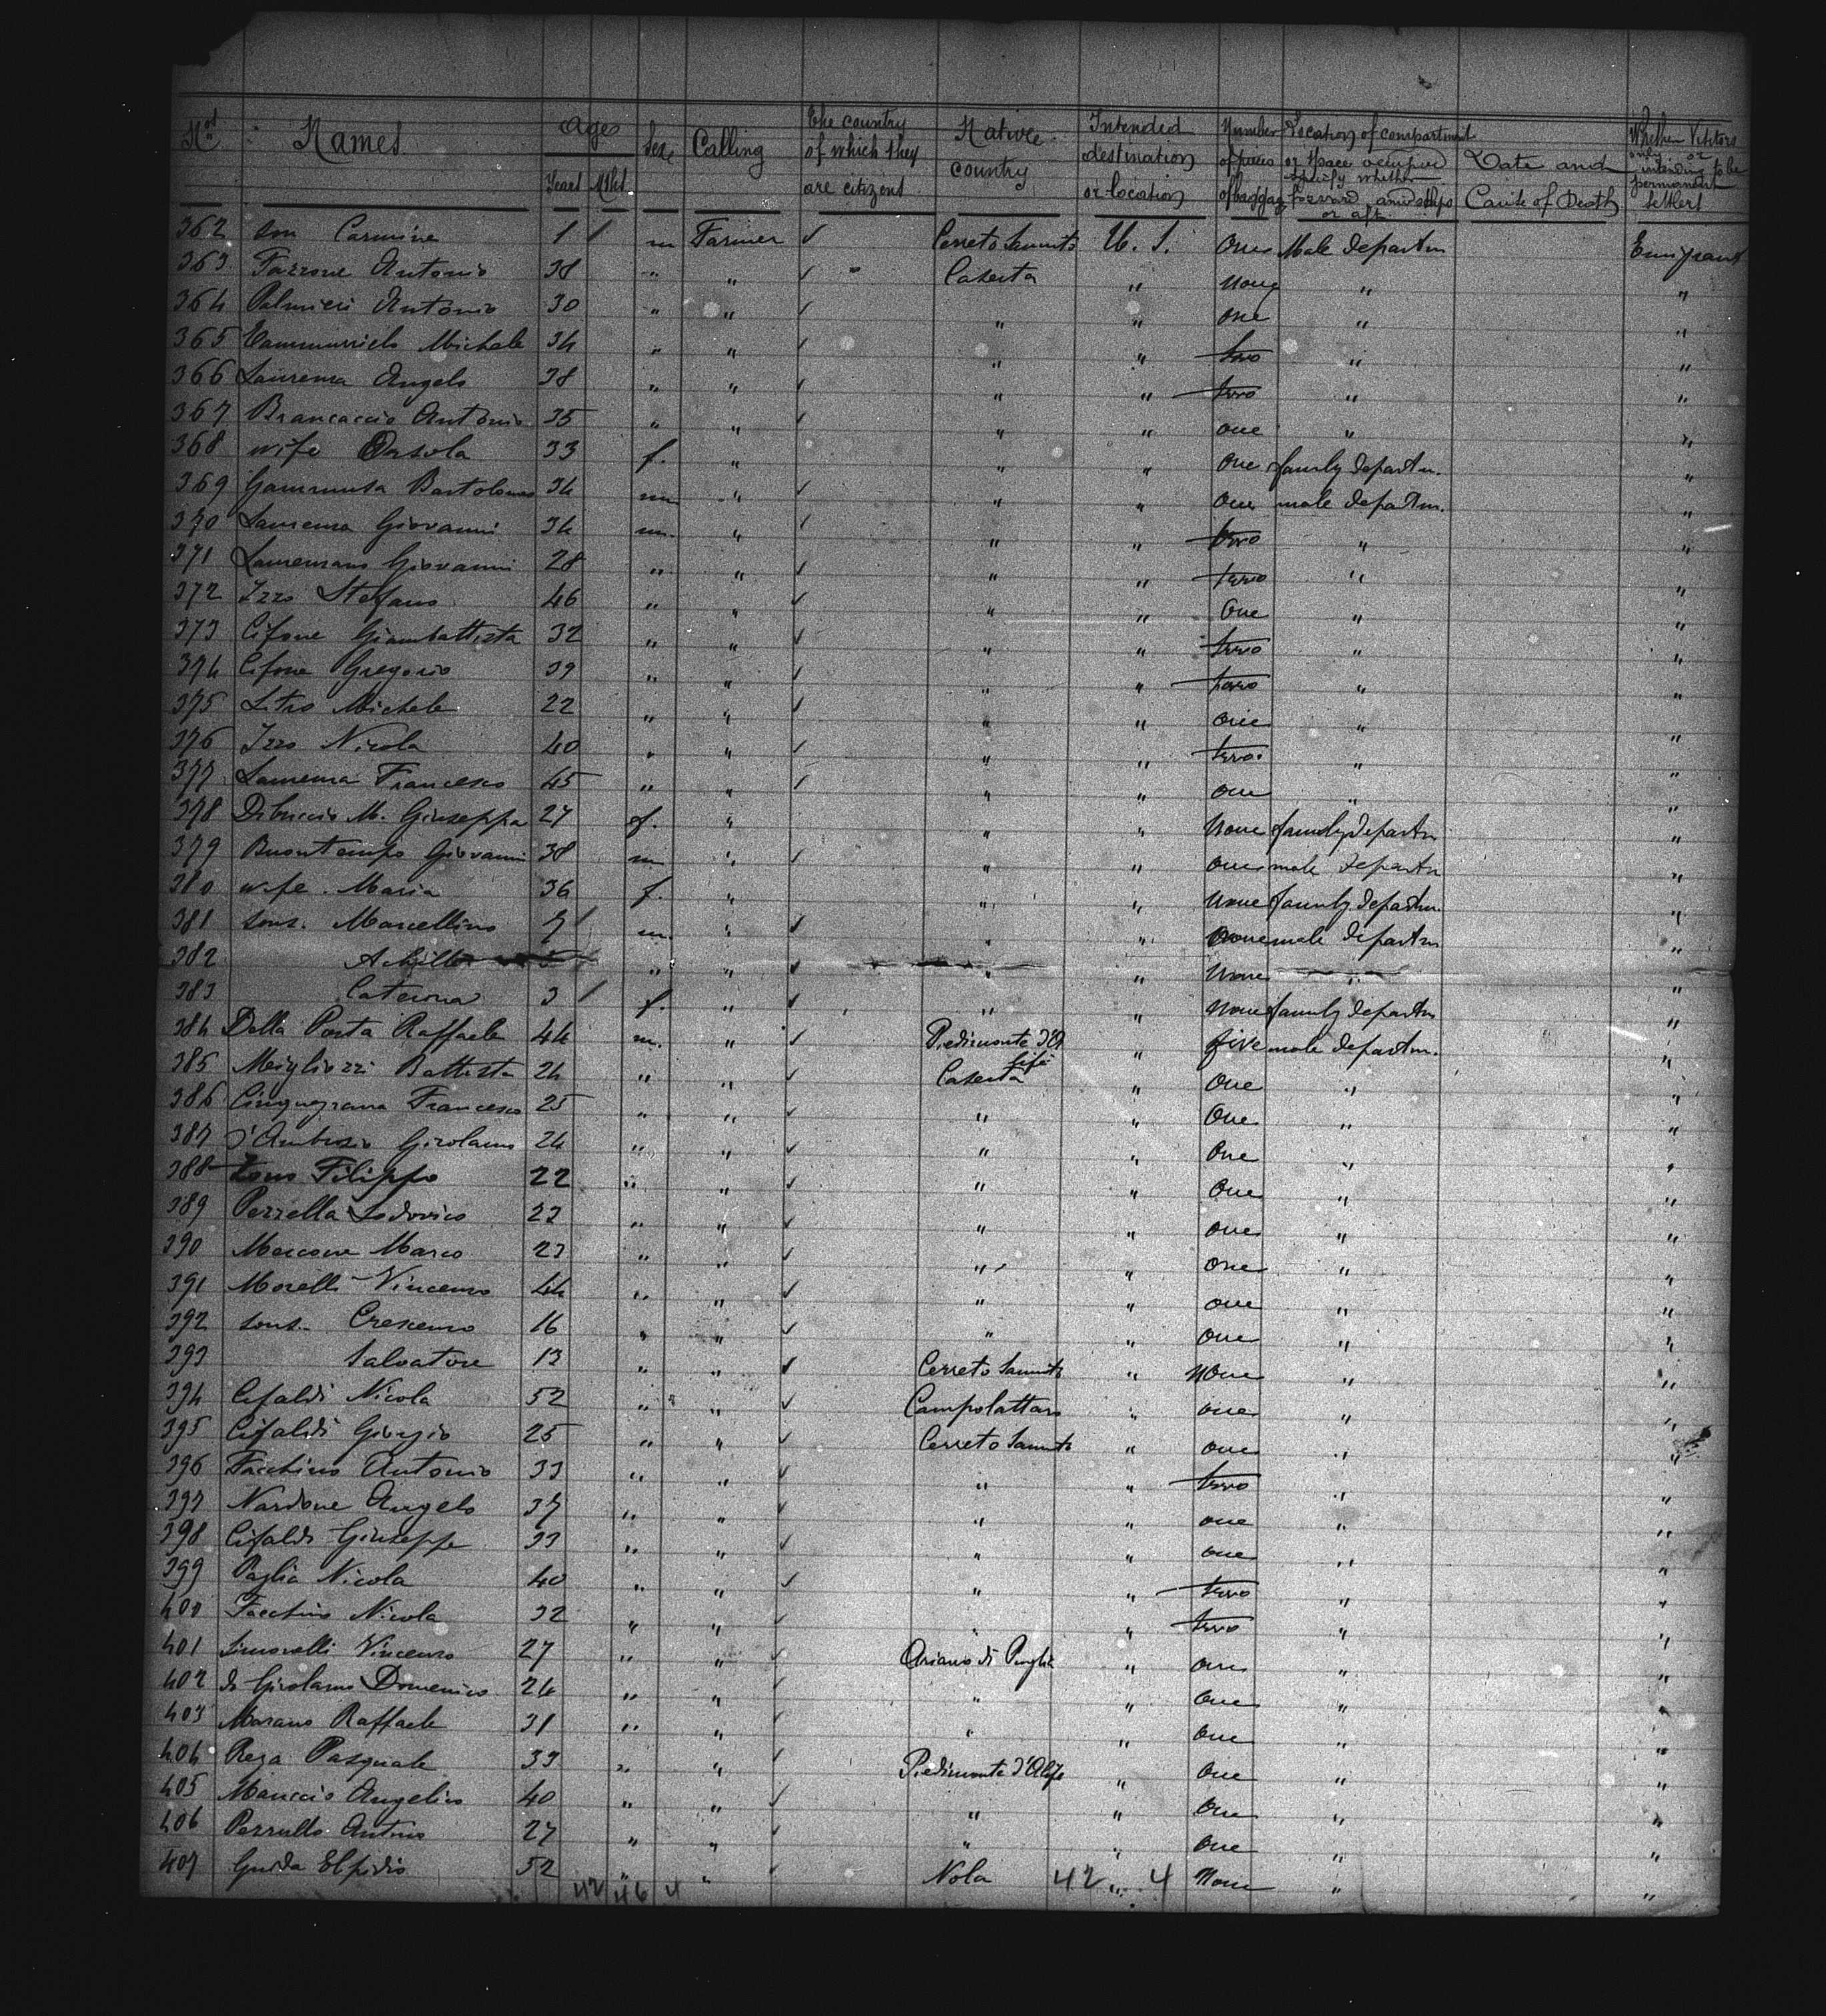 Nos Names Ages Years Mths Sex Calling The country of which they are citizens Native country Intended destination or location Number of pieces of baggage Location of compartment or space occupied specify whether forward amidships or aft Date and Cause of Death Whether Visitors only or intending to be permanent settlers
362 son Carmine 1 m Farmer ✓ Cerreto Sannita U. S. One Male departm Emigrant
363 Antonio 38 " " ✓ Caserta " None " "
364 Palmieri Antonio 30 " " ✓ " " one " "
365 Michele 34 " " ✓ " " two " "
366 Angelo 38 " " ✓ " " two " "
367 Brancaccio Antonio 35 " " ✓ " " one " "
368 wife Orsola 33 f. " " " One family departm. "
369 Bartolomeo 34 m " ✓ " " One male departm. "
370 Giovanni 34 m. " ✓ " " two " "
371 Giovanni 28 " " ✓ " " two " "
372 Izzo Stefano 46 " " ✓ " " One " "
373 Cifone Giambattista 32 " " ✓ " " two " "
374 Cifone Gregorio 39 " " ✓ " " two " "
375 Michele 22 " " ✓ " " one " "
376 Izzo Nicola 40 " " ✓ " " two " "
377 Francesco 45 " " ✓ " " one " "
378 M. Giuseppa 27 f. " " " None family departm "
379 Buontempo Giovanni 38 m " ✓ " " one male departm "
380 wife Maria 36 f. " " " None family departm. "
381 sons. Marcellino 7 m. " ✓ " " None male departm "
382 Achille " " ✓ " " None " "
383 Caterina 3 f. " ✓ " " None family departm "
384 Della Porta Raffaele 44 m. " ✓ Piedimonte d'Alife " five male departm. "
385 Battista 24 " " ✓ Caserta " One " "
386 Cinquegrana Francesco 25 " " ✓ " " One " "
387 d'Ambrosio Girolamo 24 " " ✓ " " One " "
388 Filippo 22 " " ✓ " " One " "
389 Perrella Lodovico 23 " " ✓ " " one " "
390 Marco 23 " " ✓ " " one " "
391 Morelli Vincenzo 44 " " ✓ " " one " "
392 sons. Crescenzo 16 " " ✓ " " one " "
393 Salvatore 13 " " ✓ Cerreto Sannita " None " "
394 Cifaldi Nicola 52 " " ✓ Campolattaro " one " "
395 Cifaldi Giorgio 25 " " ✓ Cerreto Sannita " one " "
396 Facchino Antonio 33 " " ✓ " " two " "
397 Nardone Angelo 37 " " ✓ " " one " "
398 Cifaldi Giuseppe 33 " " ✓ " " one " "
399 Paglia Nicola 40 " " ✓ " " two " "
400 Facchino Nicola 32 " " ✓ " " two " "
401 Vincenzo 27 " " ✓ Ariano di Puglia " one " "
402 di Girolamo Domenico 24 " " ✓ " " One " "
403 Marano Raffaele 31 " " ✓ " " One " "
404 Pasquale 33 " " ✓ Piedimonte d'Alife " One " "
405 Angelico 40 " " ✓ " " One " "
406 Perrullo Antonio 27 " " ✓ " " One " "
407 Guida Elpidio 52 " " ✓ Nola " None " "
42 46 4 42 4